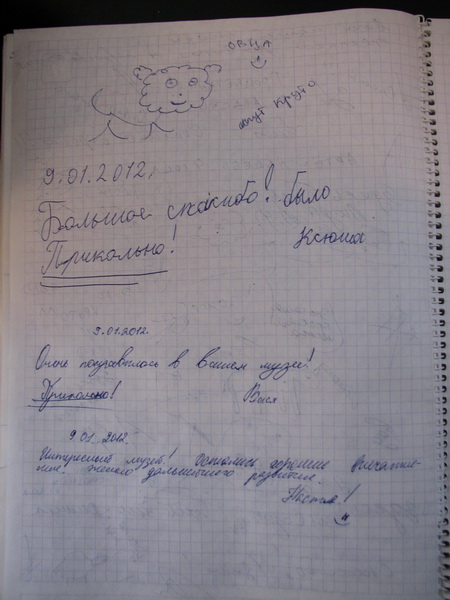 овца
тут круто
9.01.2012,
Большое спасибо! было
Прикольно!
Ксюша
9.01.2012.
Очень понравилось в вашем музеи!
Прикольно!
Вася
9.01.2012.
Интересный музей! Остались хорошие впечатле-
ние. желаю дальнейшего развития.
Настя!